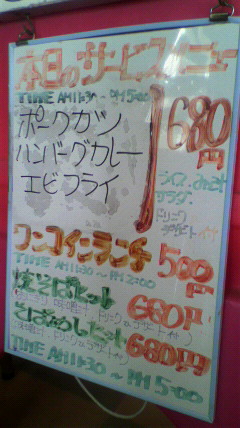 本日のサービスメニュー
TIME AM11:30 ~ PM5:00
ポークカツ
ハンバーグカレー
エビフライ
680円
ライス、みそ汁
サラダ、
ドリンク
デザート付
ワンコインランチ 500円
TIME AM11:30 ~ PM2:00
焼そばセット 680円
ドリンク&デザート付)
そばめしセット 680円
ドリンク&デザート付)
TIME AM11:30 ~ PM5:00